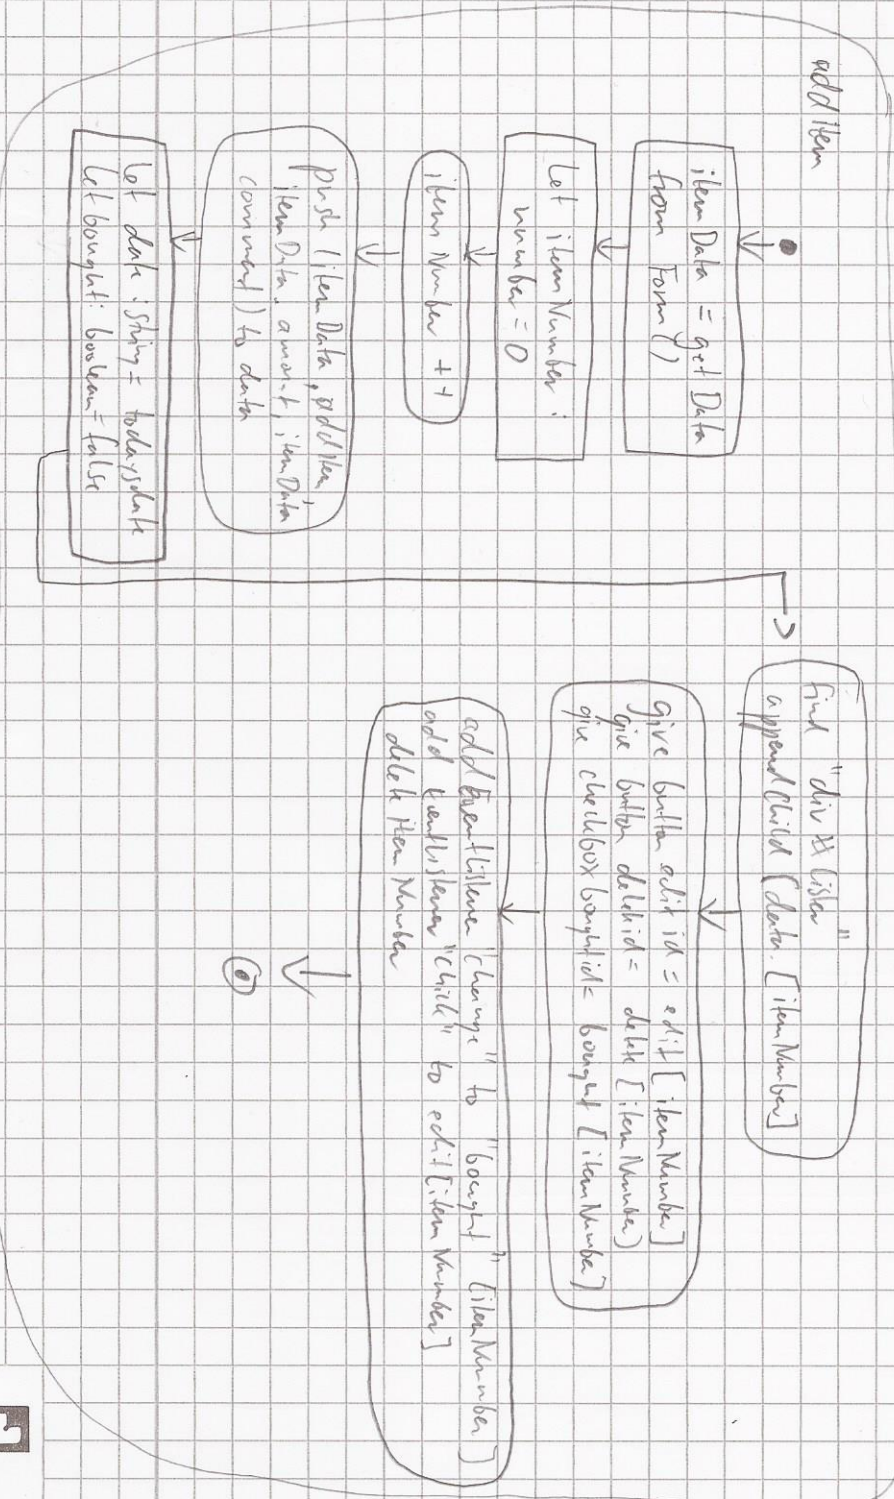 addItem
itemData = getData
from Form()
let itemNumber :
number = 0
itemNumber ++
push (itemData, addItem,
itemData, amount, itemData
comment) to data
let date : string = todaysdate
let bought : boolean = false
find "div # listen"
appendChild (data. [itemNumber]
give button edit id = edit [itemNumber]
give button delete id = delete [itemNumber)
give checkbox bought id = bought [itemNumber]
addEventListener "change" to "bought" [itemNumber]
add EventListener "click" to edit [itemNumber]
delete itemNumber